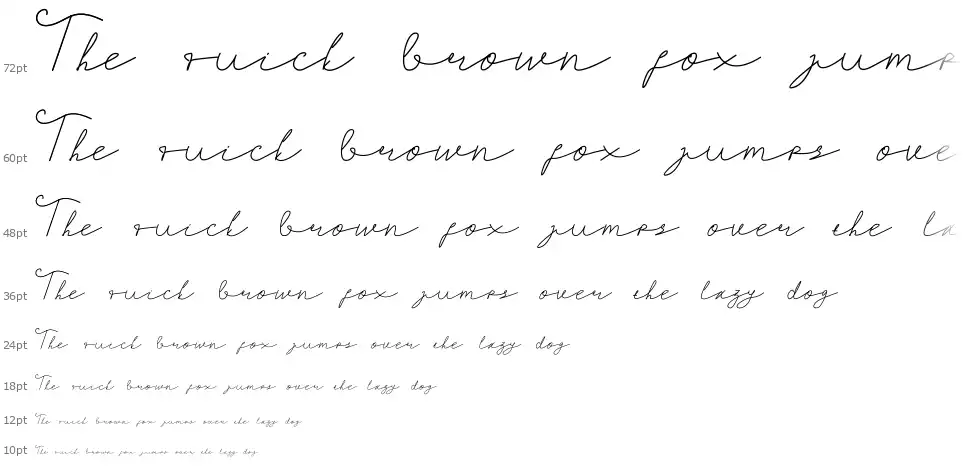 72pt The quick brown fox jumps
60pt The quick brown fox jumps ove
48pt The quick brown fox jumps over the la
36pt The quick brown fox jumps over the lazy dog
24pt The quick brown fox jumps over the lazy dog
18pt The quick brown fox jumps over the lazy dog
12pt The quick brown fox jumps over the lazy dog
10pt The quick brown fox jumps over the lazy dog